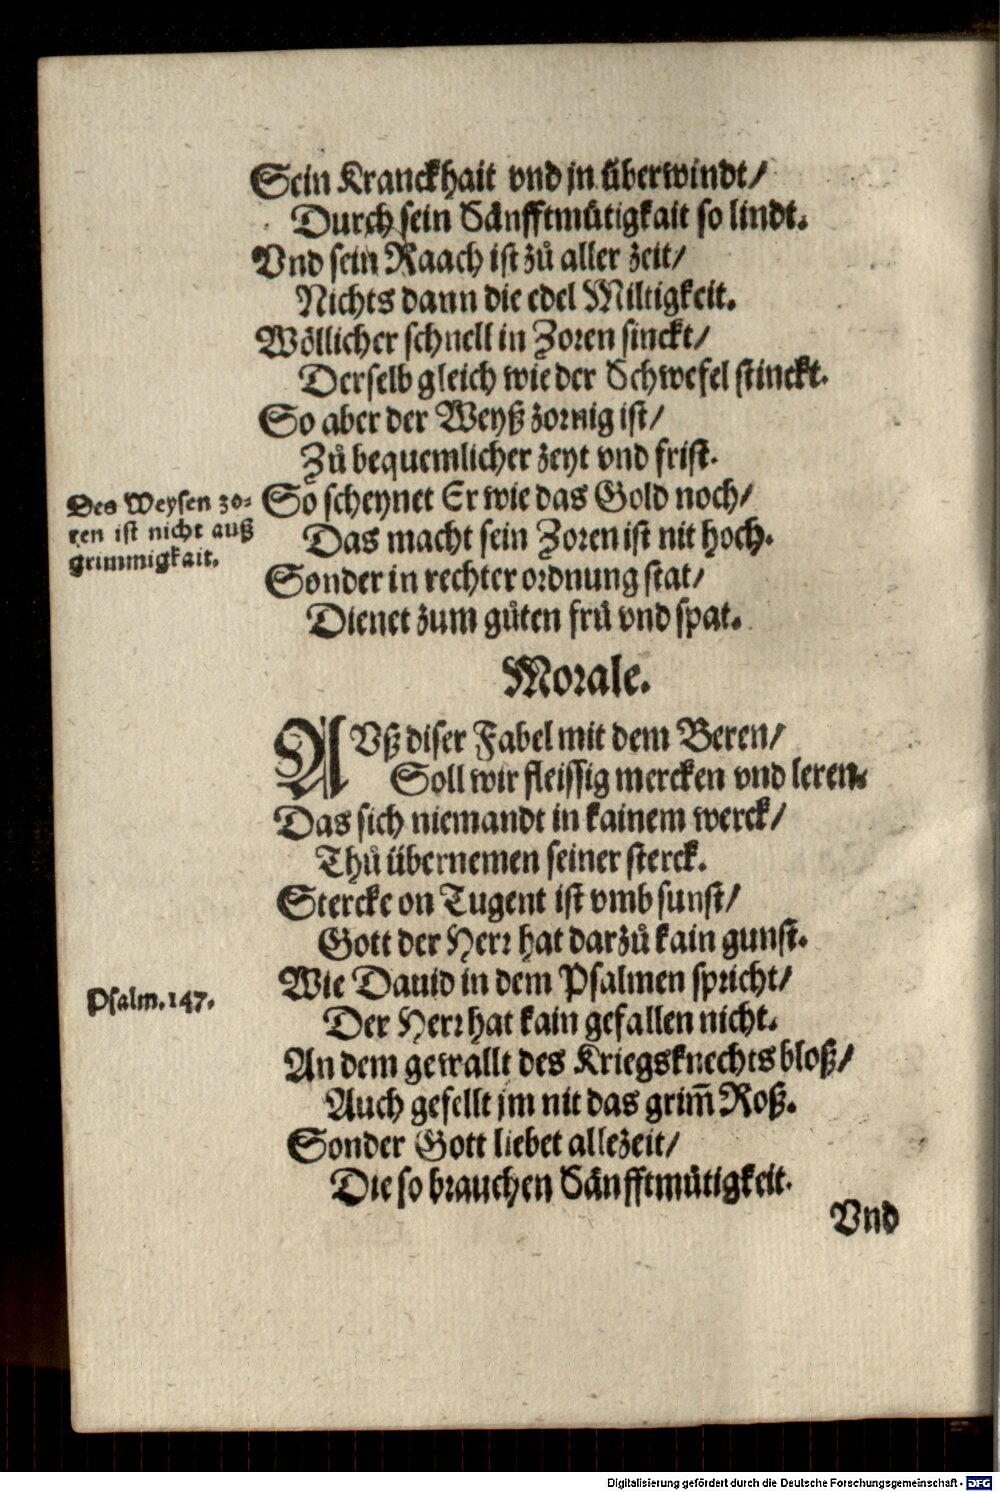 Sein Kranckhait vnd jn überwindt/
Durch sein Sänfftmütigkait so lindt.
Vnd sein Raach ist zů aller zeit/
Nichts dann die edel Miltigkeit.
Wöllicher schnell in Zoren sinckt/
Derselb gleich wie der Schwefel stinckt.
So aber der Weyß zornig ist/
Zů bequemlicher zeyt vnd frist.
Des Weysen zo-
ren ist nicht auß
grimmigkait.
So scheynet Er wie das Gold noch/
Das macht sein Zoren ist nit hoch.
Sonder in rechter ordnung stat/
Dienet zum gůten frů vnd spat.
Morale.
AVß diser Fabel mit dem Beren/
Soll wir fleissig mercken vnd leren.
Das sich niemandt in kainem werck/
Thů übernemen seiner sterck.
Stercke on Tugent ist vmb sunst/
Gott der Herr hat darzů kain gunst.
Psalm. 147.
Wie Dauid in dem Psalmen spricht/
Der Herr hat kain gefallen nicht.
An dem gewallt des Kriegsknechts bloß/
Auch gefellt jm nit das grim̄ Roß.
Sonder Gott liebet allezeit/
Die so brauchen Sänfftmütigkeit.
Vnd
Digitalisierung gefördert durch die Deutsche Forschungsgemeinschaft - DFG